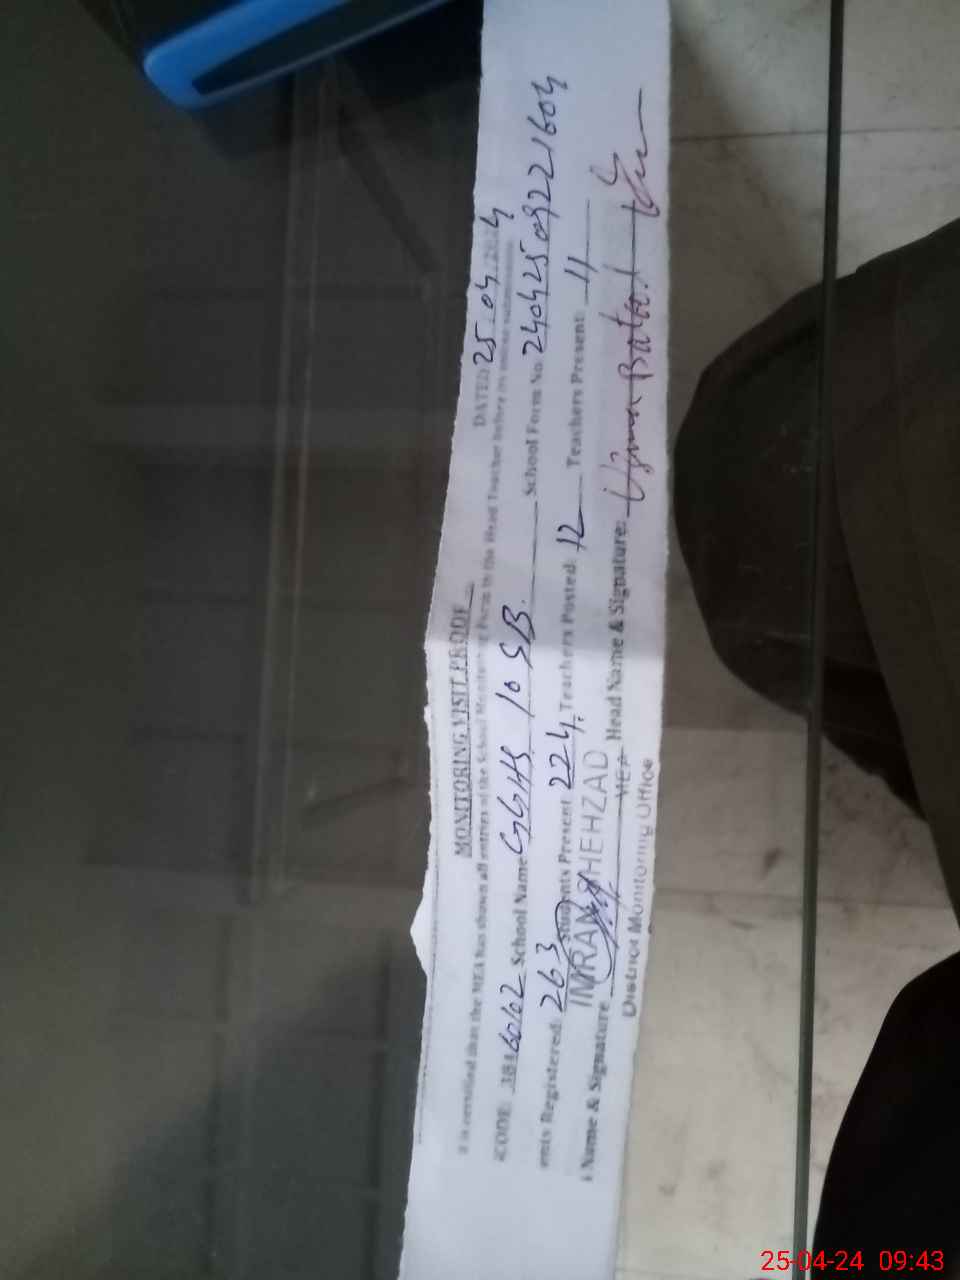 MONITORING VISIT PROOF
DATED 25.04.2024
It is certified that the MEA has shown all entries of the School Monitoring Form to the Head Teacher before its onward submission.
School Name GGHS 10 SB. School Form No. 24042509221604
ents Registered: 263 Students Present 224. Teachers Posted: 12 Teachers Present: 11
Name & Signature IMRAN SHEHZAD Head Name & Signature:
MEA
District Monitoring Office
25-04-24 09:43